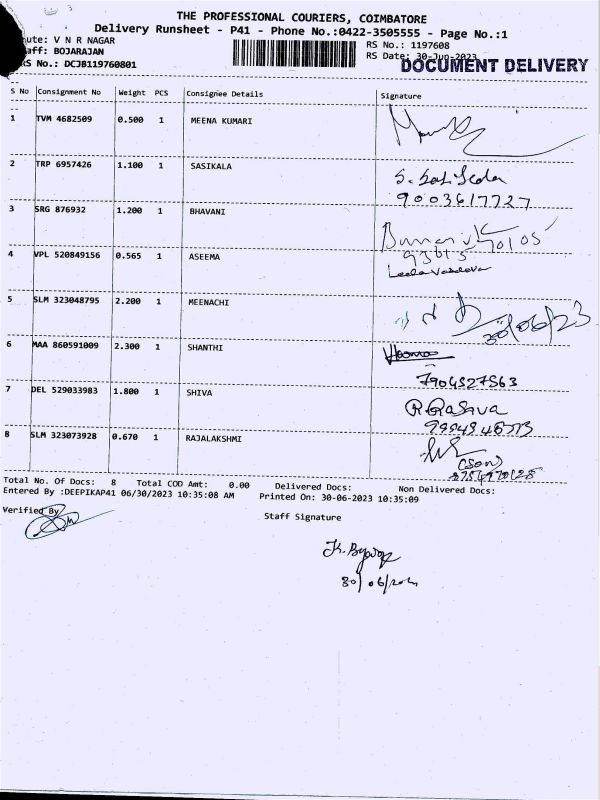 THE PROFESSIONAL COURIERS, COIMBATORE
Delivery Runsheet - P41 - Phone No.:0422-3505555 - Page No.:1
ute: V N R NAGAR
RS No.: 1197608
aff: BOJARAJAN
RS Date: 30-Jun-2023
RS No.: DCJB119760801
DOCUMENT DELIVERY
S No Consignment No Weight PCS Consignee Details Signature
1 TVM 4682509 0.500 1 MEENA KUMARI
2 TRP 6957426 1.100 1 SASIKALA
9003617727
3 SRG 876932 1.200 1 BHAVANI
4 VPL 520849156 0.565 1 ASEEMA
5 SLM 323048795 2.200 1 MEENACHI
30/06/23
6 MAA 860591009 2.300 1 SHANTHI
7904527563
7 DEL 529033983 1.800 1 SHIVA
8 SLM 323073928 0.670 1 RAJALAKSHMI
(SON)
Total No. Of Docs: 8 Total COD Amt: 0.00 Delivered Docs: Non Delivered Docs:
Entered By :DEEPIKAP41 06/30/2023 10:35:08 AM Printed On: 30-06-2023 10:35:09
Verified By
Staff Signature